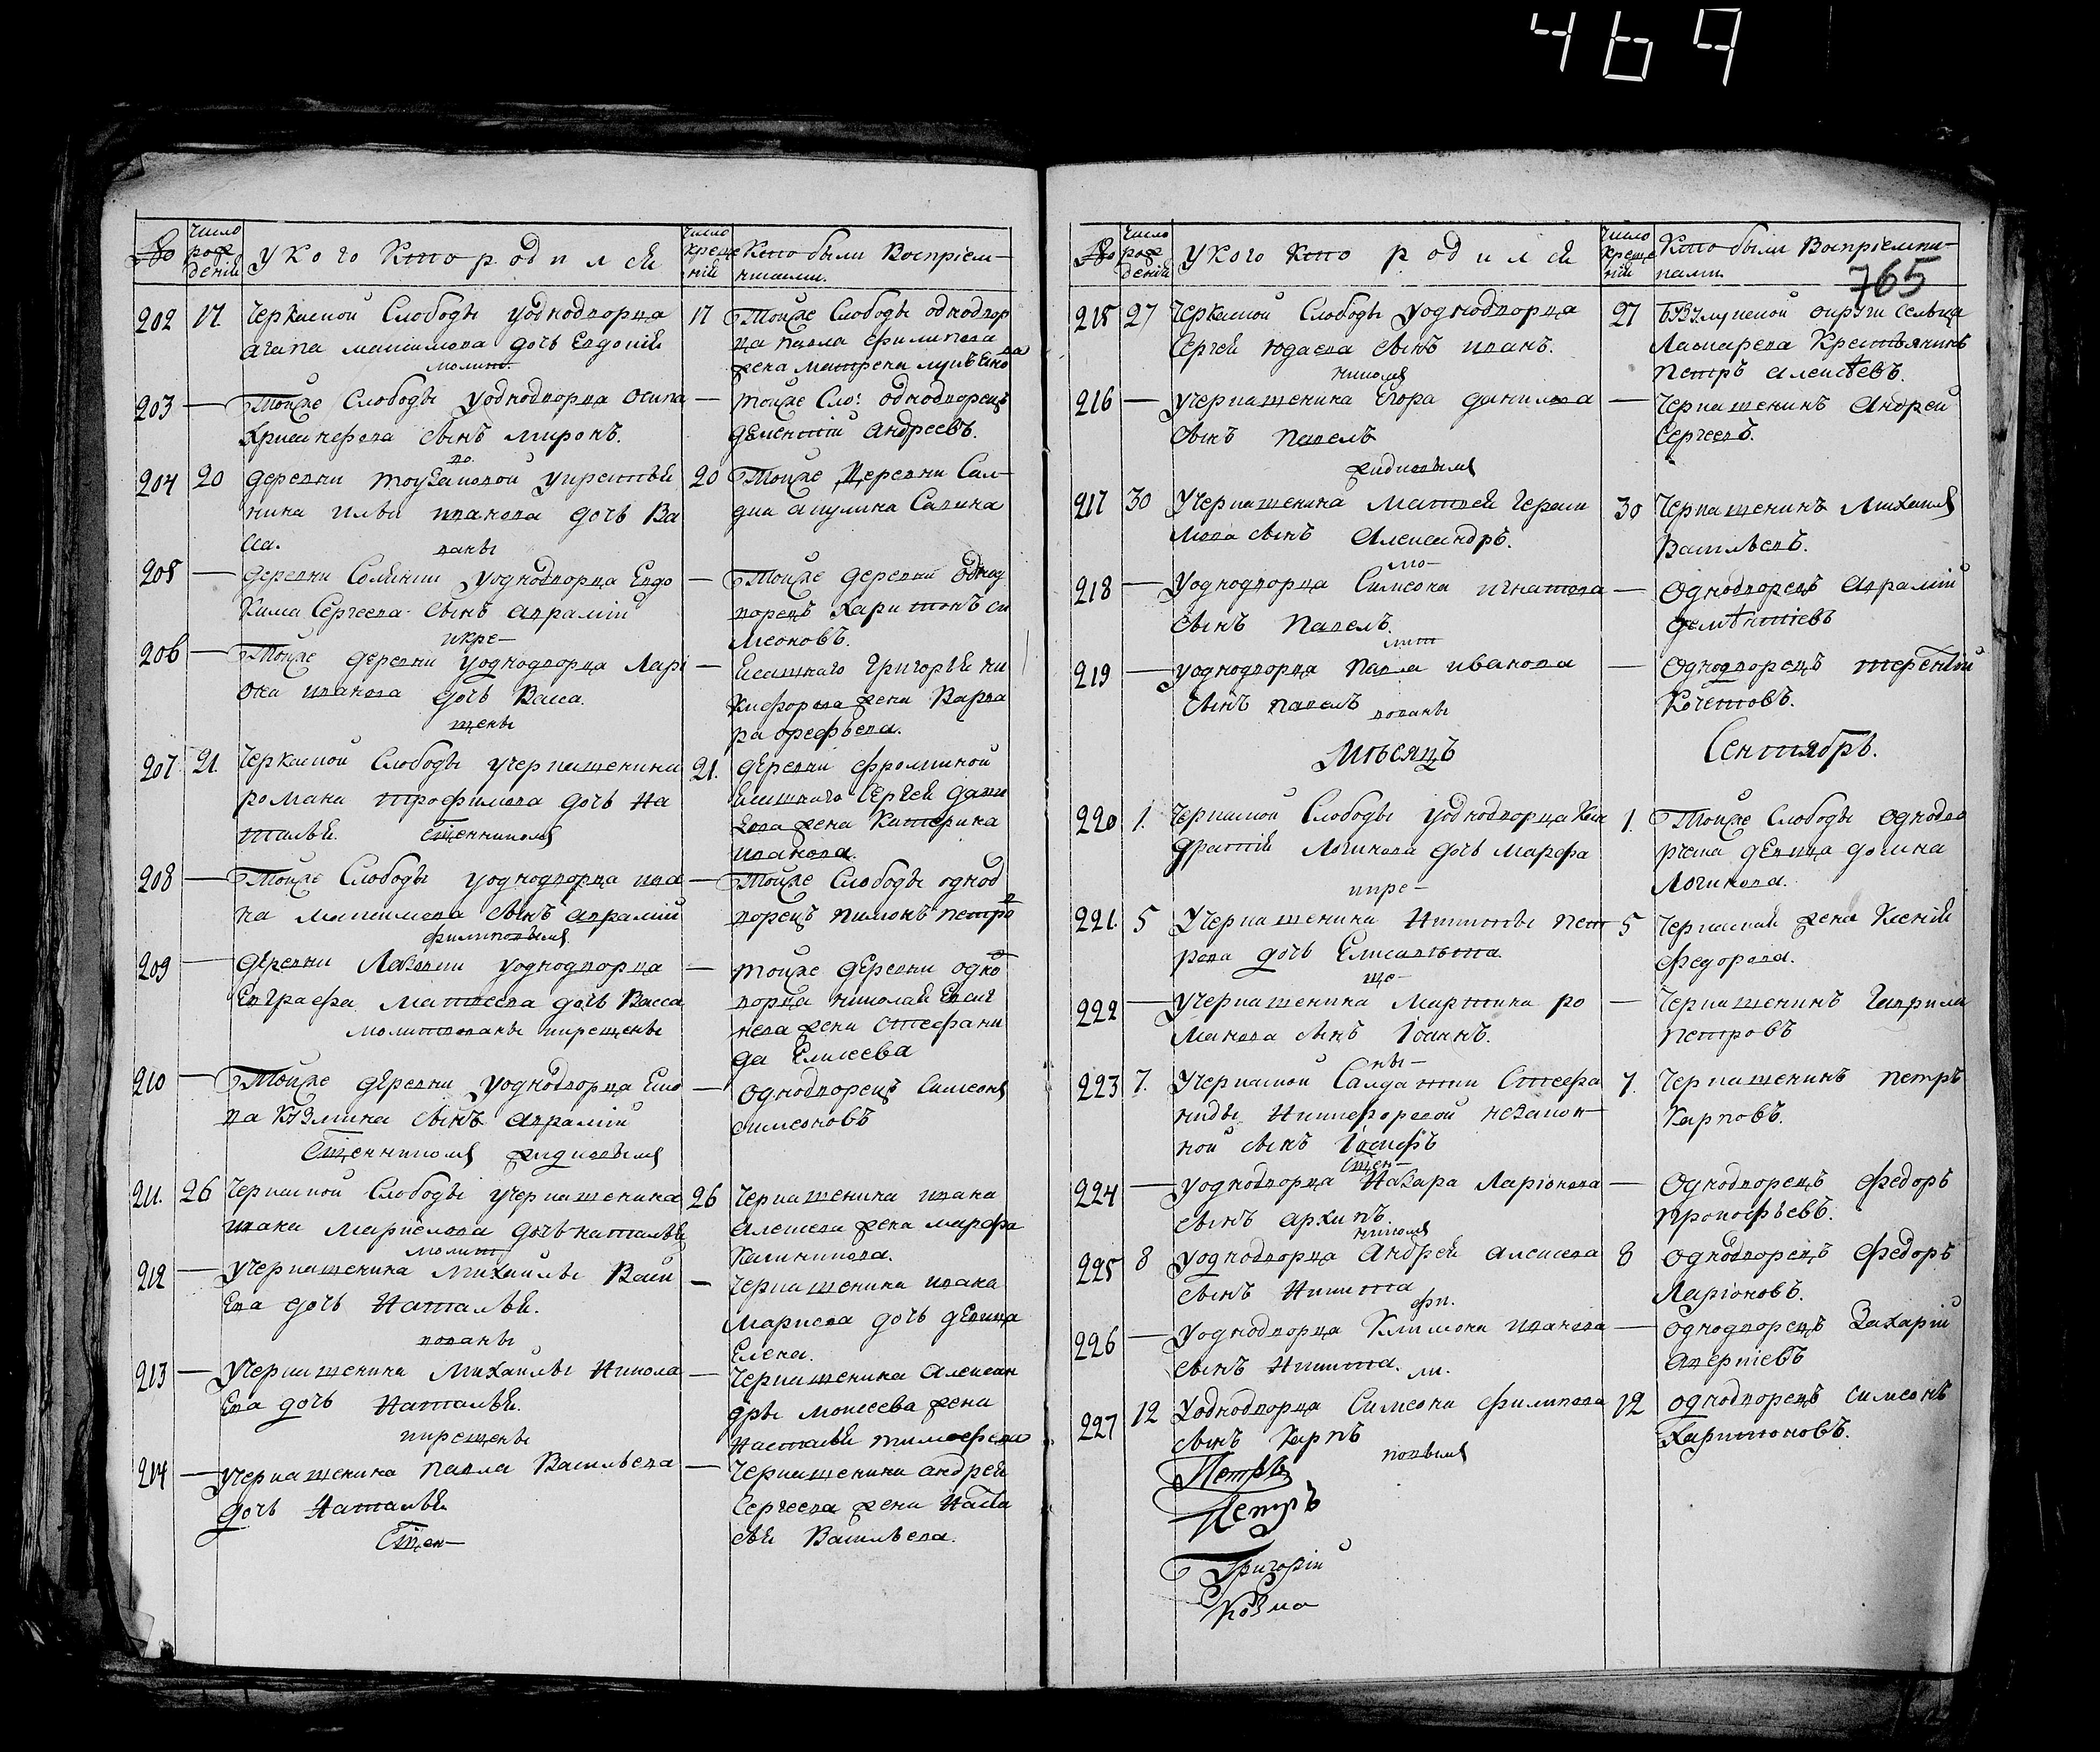 469
765
№
число рождений
У кого кто родился
число крещений
Кто были воспріем-
никами.
202 17 Черкаской Слободы у однодворца 17
Агапа Максимова дочь Евдокия
молит.
Тойже Слободы однодвор
ца Павла Филипова
жена Матрена
203 — Тойже Слободы у однодворца Осипа —
Хрисанфова сынъ Миронъ.
во.
тойже Сло: однодворецъ
Дементий Андреевъ.
204 20 деревни у крестья 20
нина Ильи Иванова дочь Ва
са.
ваны
Тойже Деревни Сал-
дка Акулина Савина
205 — деревни у однодворца Евдо —
кима Сергеева сынъ Аврамий
икре-
Тойже деревни однод
ворецъ Харитонъ Си
меоновъ.
206 — Тойже деревни у однодворца Лари —
она Иванова дочь Васса.
щены
Ясашнаго Григорья Ни
кифорова жена Варва
ра Орефьева.
207 21. Черкаской Слободы у черкашенина 21.
Романа Трофимова дочь На
талья. Сщенникомъ
деревни Фроминой
Ясашнаго Сергея
жена Катерина
Иванова.
208 — Тойже Слободы у однодворца Ива —
на Максимова сынъ Аврамий
филиповымъ
Тойже Слободы однод
ворецъ Пимонъ Петро
209 — деревни у однодворца —
Евграфа Матвеева дочь Васса
молитвованы икрещены
тойже деревни одно
ворца Николая Евсиг
нева жена Стефани
да Елисеева
210 — Тойже деревни у однодворца —
Кузмина сынъ Аврамий
Сщенникомъ
однодворецъ Симеонъ
Симеоновъ
211. 26 Черкаской Слободы у черкашенина 26
Ивана дочь Наталья
молит
Черкашенина Ивана
Алексева жена Марфа
Калиникова.
212 — У черкашенина Михайлы Васи —
ева дочь Наталья.
вованы
Черкашенина Ивана
дочь девица
Елена.
213 — У черкашенина Михайлы Никола —
ева дочь Наталья.
икрещены
Черкашенина Алексан
дры Моисеева жена
Настасья Тимофеева
214 — У черкашенина Павла Васильева —
дочь Наталья
Сщен-
Черкашенина Андрея
Сергеева жена Наста
сья Васильева.
№
число рождений
У кого кто родился
число крещений
Кто были Воспріемни-
ками.
215 27 Черкаской Слободы у однодворца 27
Сергея Юдаева сынъ Иванъ.
никомъ
округи Сельца
Крестьянинъ
Петръ Алексѣевъ.
216 — У черкашенина Егора Данилова —
сынъ Павелъ
Черкашенинъ Андрей
Сергеевъ.
217 30 У черкашенина Матвея Гераси 30
мова сынъ Александръ.
мо-
Черкашенинъ Михаилъ
Васильевъ.
218 — У однодворца Симеона Игнатова —
сынъ Павелъ.
лит
Однодворецъ Аврамий
Демѣнтиевъ
219 — у однодворца Павла Иванова —
сынъ Павелъ
вованы
Однодворецъ Терентий
Кочетовъ.
Мѣсяцъ Сентябрь.
220 1. Черкаской Слободы у однодворца Кон 1.
дратия Логинова дочь Марфа
икре-
Тойже Слободы однодво
рческа девица
Логинова.
221. 5 У черкашенина Никиты Пет 5
рова дочь Елисавета.
ще-
Черкаская жена Ксения
Федорова.
222 — У черкашенина Мартина Ро —
манова сынъ Iоаннъ.
ны-
Черкашенинъ Гаврила
Петровъ
223 7. У черкаской Салдатки Стефа 7.
ниды Никифоровой незакон
ной сынъ Iосифъ
Сщен-
Черкашенинъ Петръ
Карповъ.
224 — У однодворца Назара Ларионова —
сынъ Архипъ
никомъ
Однодворецъ Федоръ
Прокофьевъ.
225 8 У однодворца Андрея Алексева 8
сынъ Никита
фи.
Однодворецъ Федоръ
Ларионовъ.
226 — У однодворца Климона Иванова —
сынъ Никита. ли.
Однодворецъ Захарий
Аверкиевъ
227 12 У однодворца Симеона Филипова 12
сынъ Карпъ
повымъ
однодворецъ Симеонъ
Харитоновъ.
Петръ
Петръ
Григорій
Козма